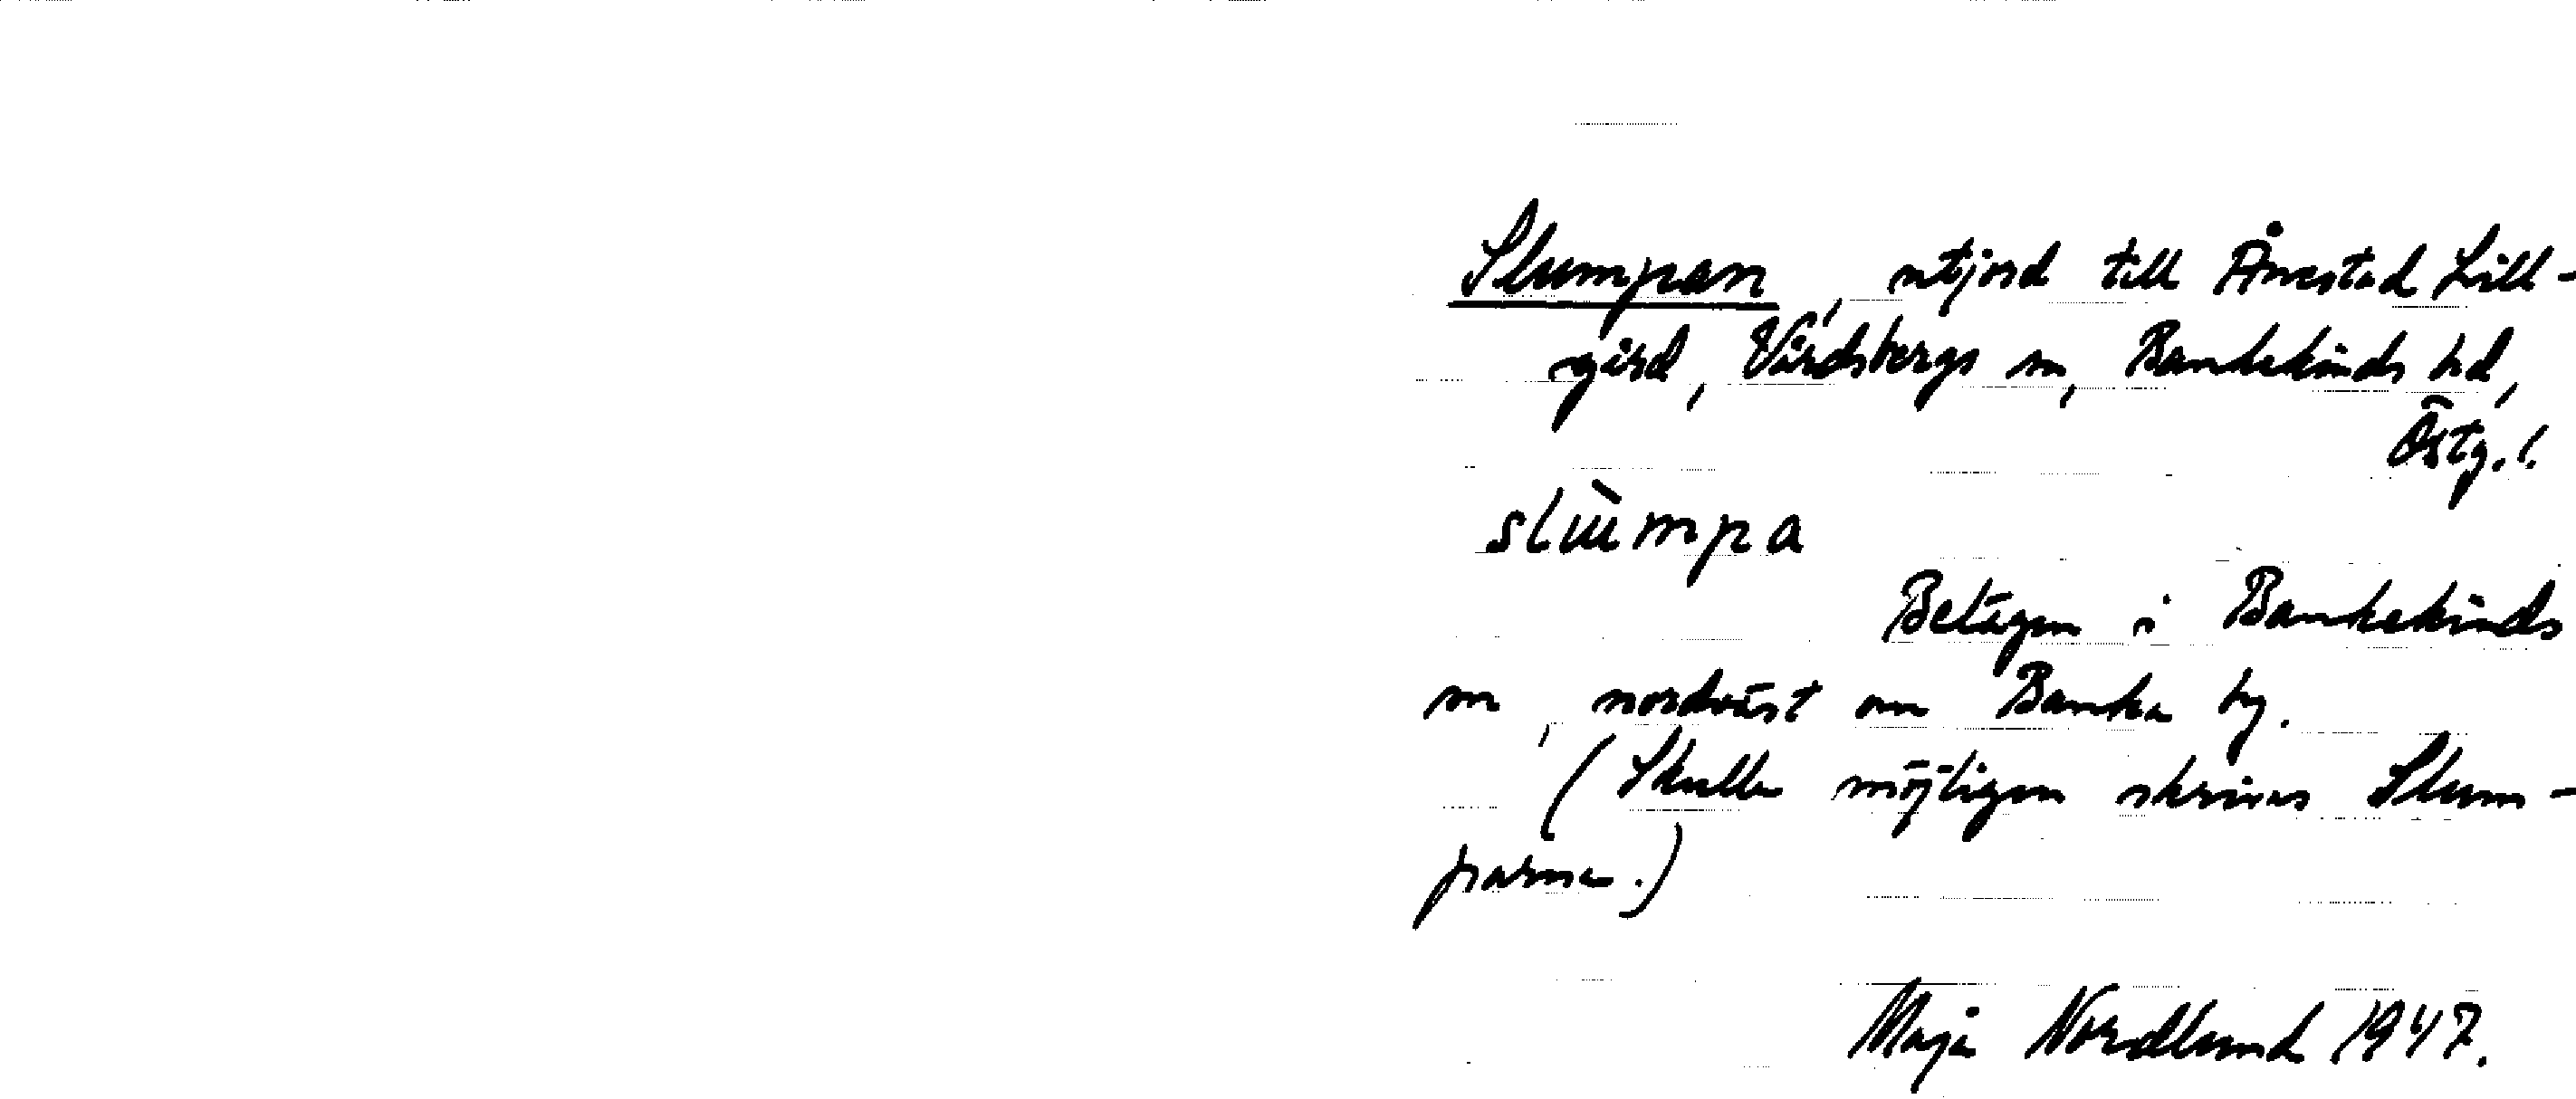 Slumpan, utjord till Ånestad Lill-
gård, Vårdsbergs sn, Bankekinds hd,
Östg. l.
slu̇̀mpa
Belägen i Bankekinds
sn, nordväst om Banka by.
(Skulle möjligen skrivas Slum-
parna.)
Maja Nordlund 1947.